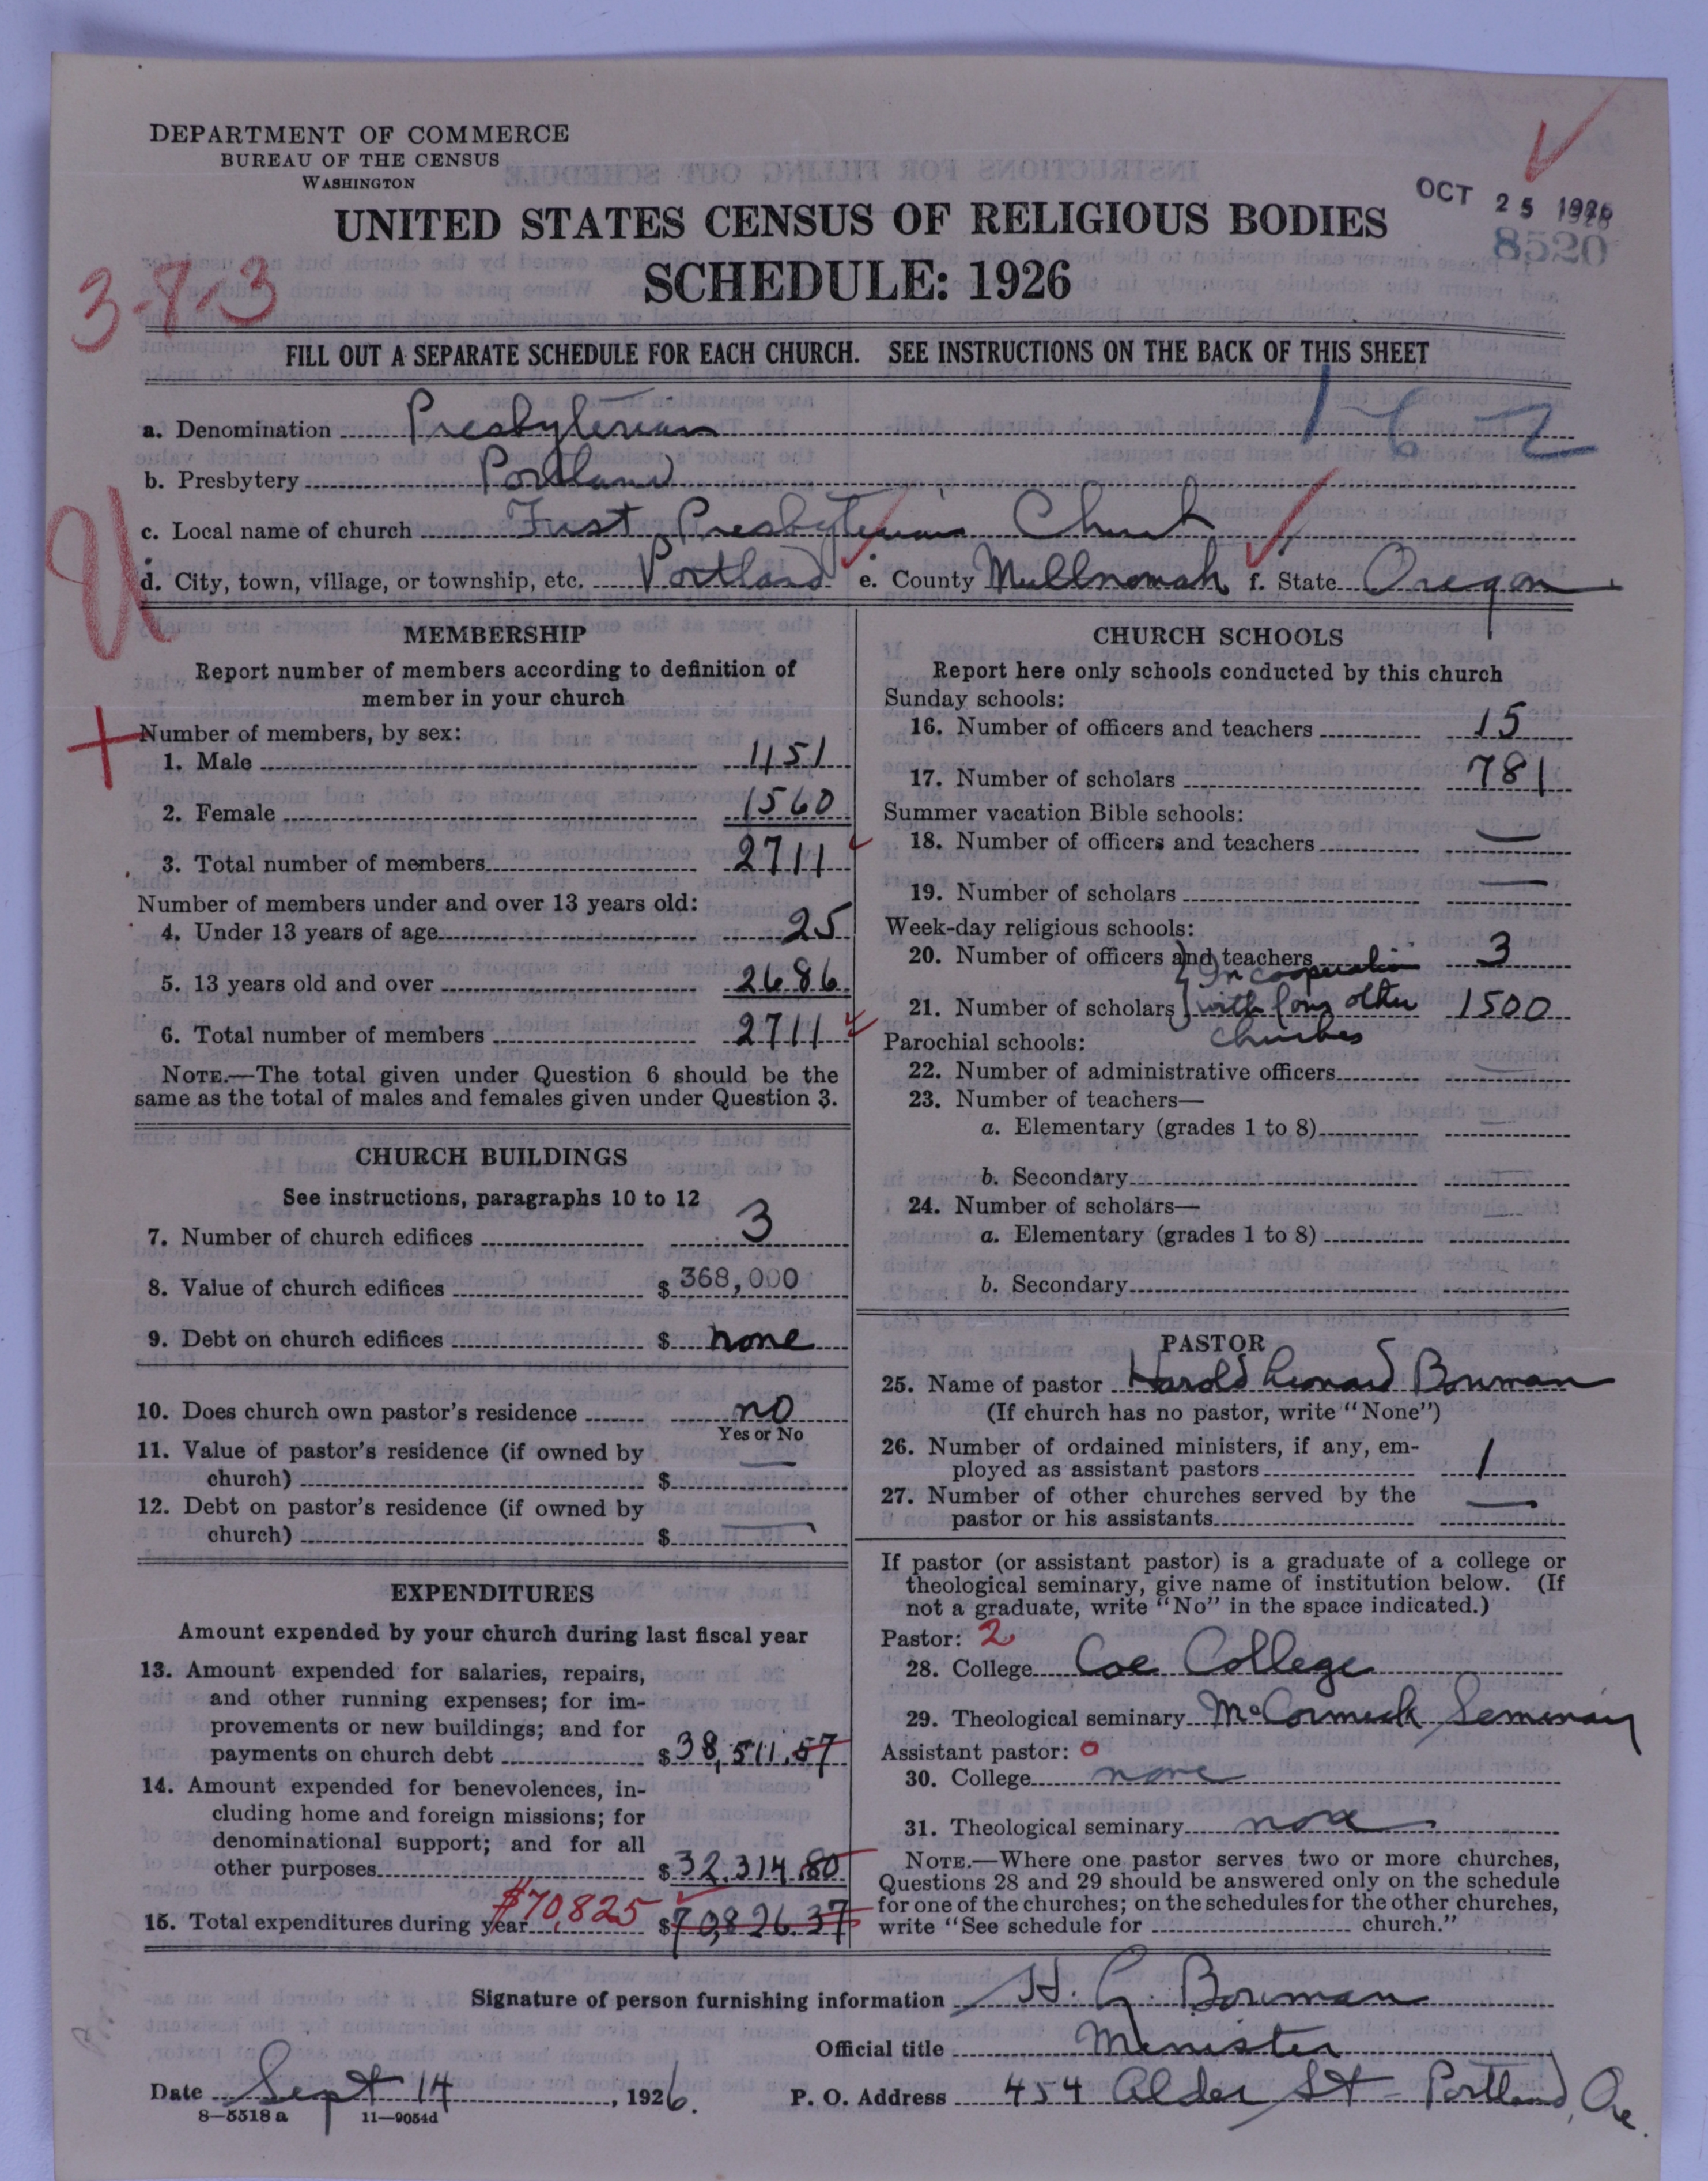 DEPARTMENT OF COMMERCE
BUREAU OF THE CENSUS
WASHINGTON
OCT 25 1926
8520
UNITED STATES CENSUS OF RELIGIOUS BODIES
SCHEDULE: 1926
3-8-3
FILL OUT A SEPARATE SCHEDULE FOR EACH CHURCH. SEE INSTRUCTIONS ON THE BACK OF THIS SHEET
1-62
a. Denomination Presbyterian
b. Presbytery Portland
c. Local name of church First Presbyterian Church
d. City, town, village, or township, etc. Portland e. County Multnomah f. State Oregon
MEMBERSHIP
Report number of members according to definition of
member in your church
Number of members, by sex:
1. Male 1151
2. Female 1560
3. Total number of members 2711
Number of members under and over 13 years old:
4. Under 13 years of age 25
5. 13 years old and over 2686
6. Total number of members 2711
NOTE.—The total given under Question 6 should be the
same as the total of males and females given under Question 3.
CHURCH BUILDINGS
See instructions, paragraphs 10 to 12
7. Number of church edifices 3
8. Value of church edifices $ 368,000
9. Debt on church edifices $ none
10. Does church own pastor's residence no
Yes or No
11. Value of pastor's residence (if owned by
church) $ —
12. Debt on pastor's residence (if owned by
church) $ —
EXPENDITURES
Amount expended by your church during last fiscal year
13. Amount expended for salaries, repairs,
and other running expenses; for im-
provements or new buildings; and for
payments on church debt $ 38,511.57
14. Amount expended for benevolences, in-
cluding home and foreign missions; for
denominational support; and for all
other purposes $ 32,314.80
$70,825
15. Total expenditures during year $ 70,826.37
CHURCH SCHOOLS
Report here only schools conducted by this church
Sunday schools:
16. Number of officers and teachers 15
17. Number of scholars 781
Summer vacation Bible schools:
18. Number of officers and teachers —
19. Number of scholars —
Week-day religious schools:
20. Number of officers and teachers 3
In cooperation
21. Number of scholars with four other 1500
churches
Parochial schools:
22. Number of administrative officers —
23. Number of teachers—
a. Elementary (grades 1 to 8)
b. Secondary
24. Number of scholars—
a. Elementary (grades 1 to 8)
b. Secondary
PASTOR
25. Name of pastor Harold Leonard Bowman
(If church has no pastor, write "None")
26. Number of ordained ministers, if any, em-
ployed as assistant pastors 1
27. Number of other churches served by the
pastor or his assistants —
If pastor (or assistant pastor) is a graduate of a college or
theological seminary, give name of institution below. (If
not a graduate, write "No" in the space indicated.)
Pastor: 2
28. College Coe College
29. Theological seminary McCormick Seminary
Assistant pastor: 0
30. College none
31. Theological seminary none
NOTE.—Where one pastor serves two or more churches,
Questions 28 and 29 should be answered only on the schedule
for one of the churches; on the schedules for the other churches,
write "See schedule for church."
Signature of person furnishing information H. L. Bowman
Official title Minister
Date Sept 14, 1926. P. O. Address 454 Alder St - Portland, Ore.
8—5518 a 11—9054d